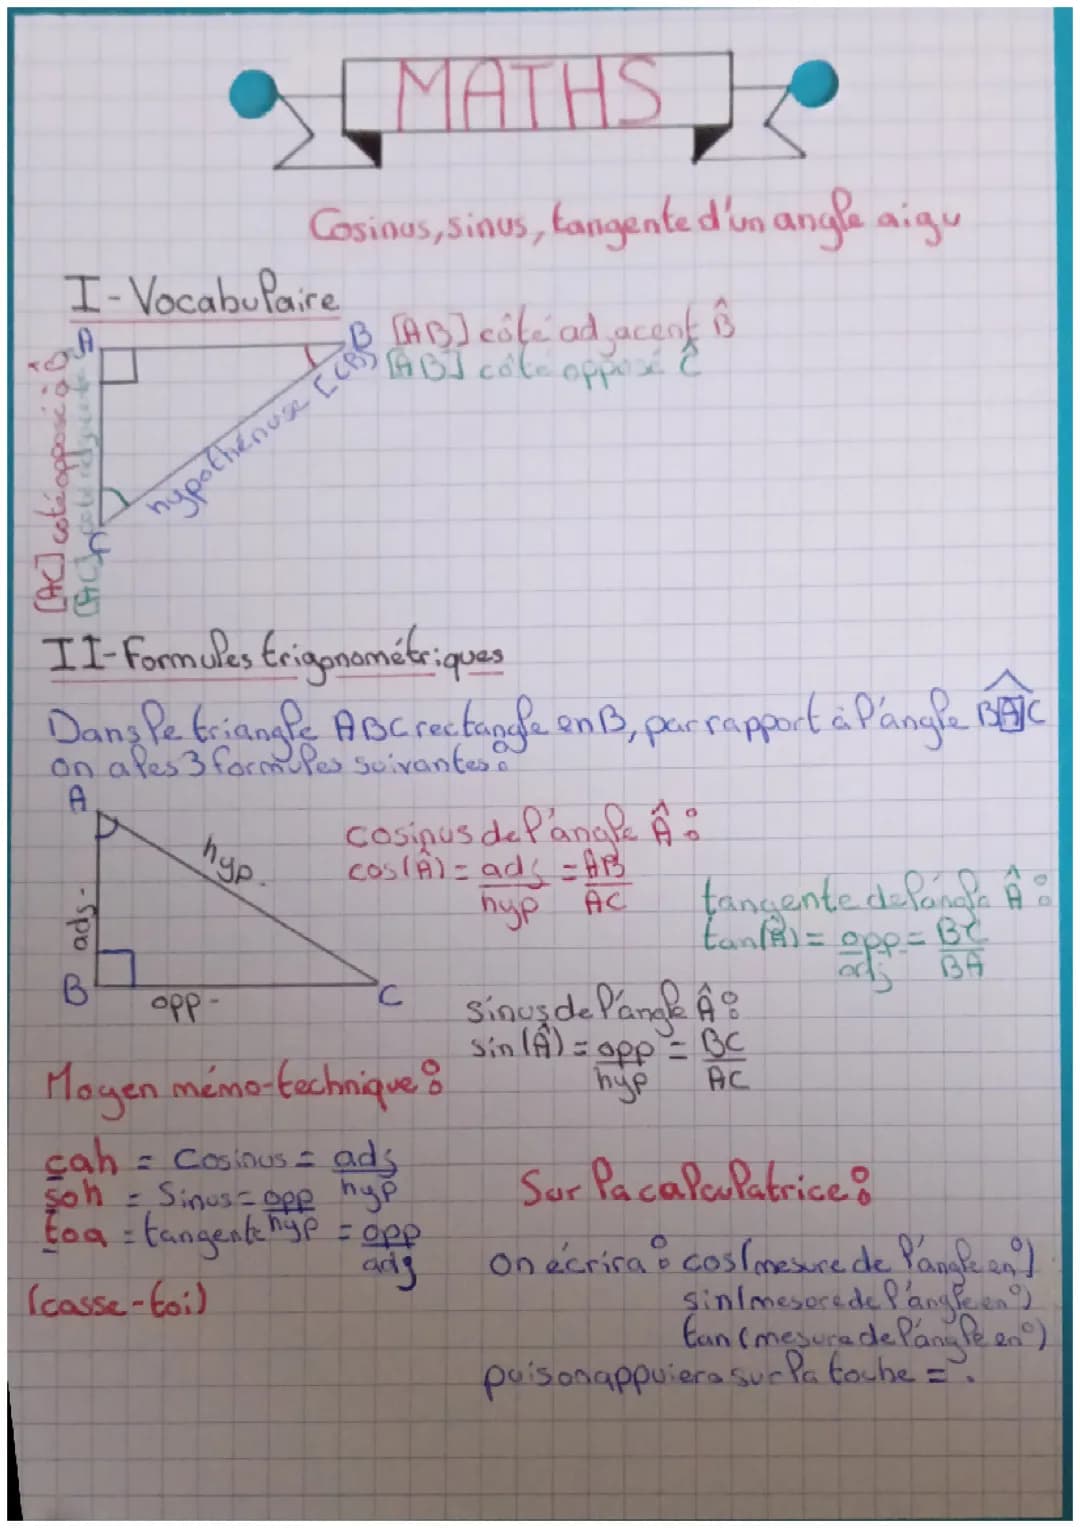 MATHS
Cosinus, sinus, tangente d'un angle aigu
I - Vocabulaire
A
B
[AB] côté adjacent B̂
[AB] côté opposé Ĉ
hypothénuse [CB]
[AC] coté opposé à B̂
[AC] coté adjacent
C
II - Formules trigonométriques
Dans le triangle ABC rectangle en B, par rapport à l'angle BAC
on a les 3 formules suivantes :
A
hyp.
adj.
B
opp.
C
cosinus de l'angle Â :
cos(Â) = adj/hyp = AB/AC
tangente de l'angle Â :
tan(Â) = opp/adj = BC/BA
sinus de l'angle Â :
sin(Â) = opp/hyp = BC/AC
Moyen mémo-technique :
cah = Cosinus = adj/hyp
soh = Sinus = opp/hyp
toa = tangente = opp/adj
(casse-toi)
Sur la calculatrice :
on écrira : cos(mesure de l'angle en °)
sin(mesure de l'angle en °)
tan(mesure de l'angle en °)
puis on appuiera sur la touche = .